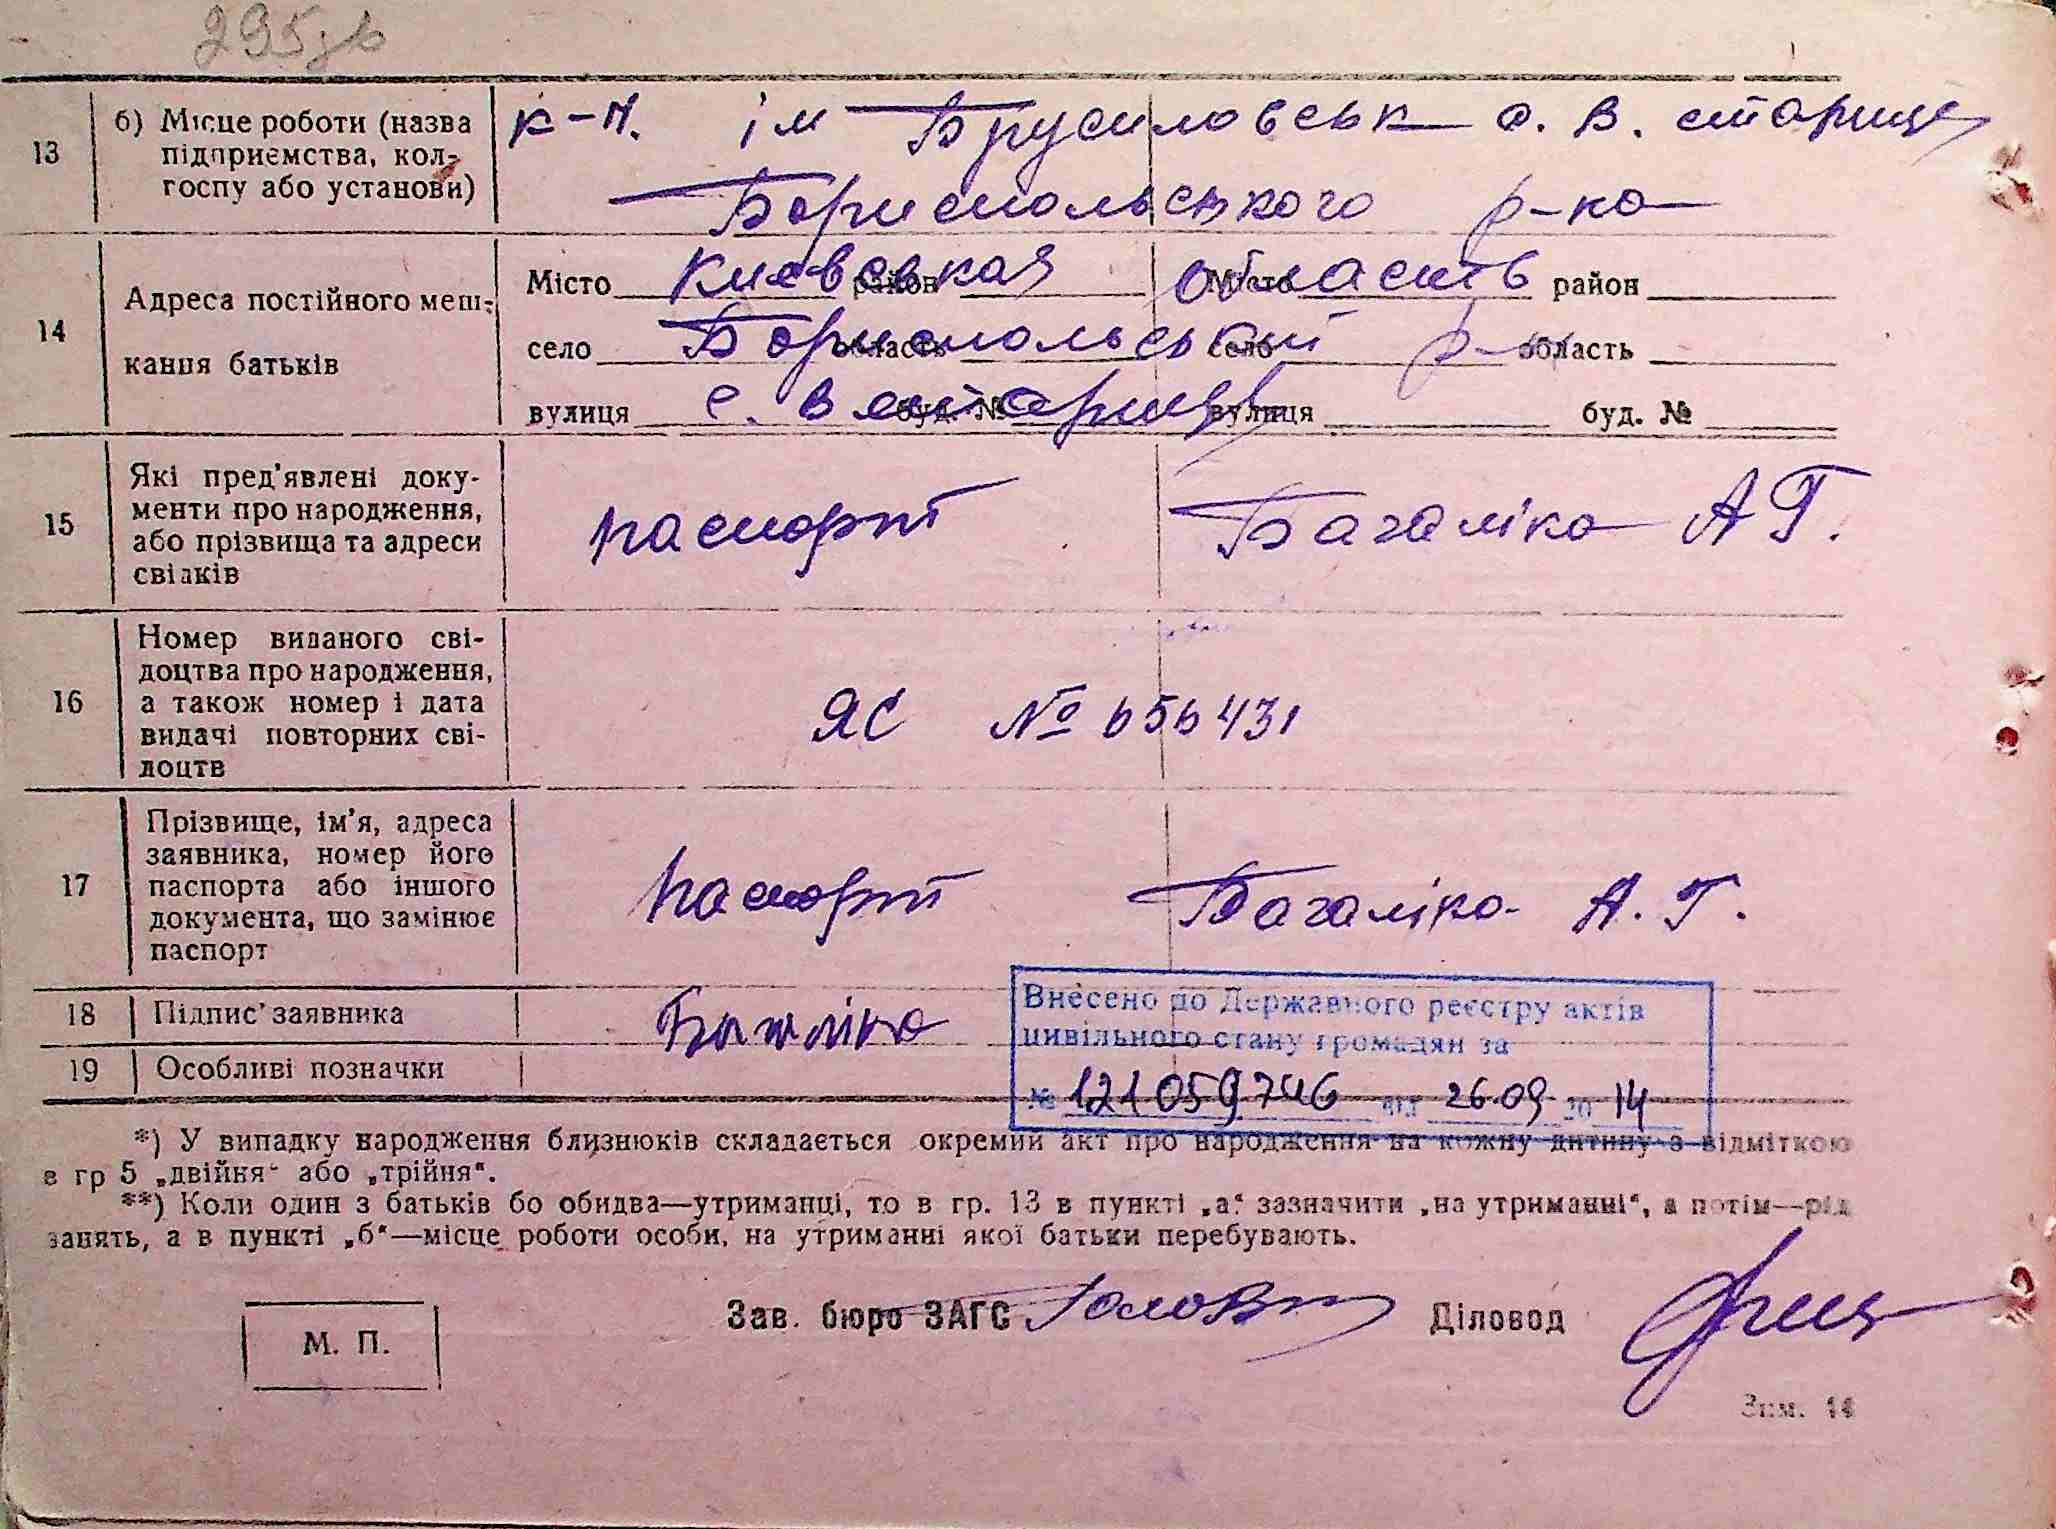 295зв
13 б) Місце роботи (назва підприємства, кол-госпу або установи)
к-п. ім Брусиловськ с. В. старица
Бориспольського р-на
14 Адреса постійного меш-кання батьків
Місто Киевская район Місто область район
село Бориспольський область село р-н область
вулиця с. В старица буд. № вулиця буд. №
15 Які пред'явлені доку-
менти про народження,
або прізвища та адреси
свідків
паспорт Багаліка А Г.
16 Номер виданого сві-
доцтва про народження,
а також номер і дата
видачі повторних сві-
доцтв
ЯС № 656431
17 Прізвище, ім'я, адреса
заявника, номер його
паспорта або іншого
документа, що замінює
паспорт
паспорт Багаліка А. Г.
18 Підпис заявника Багаліка
19 Особливі позначки
Внесено до Державного реєстру актів
цивільного стану громадян за
№ 121059746 від 26.09 20 14
*) У випадку народження близнюків складається окремий акт про народження на кожну дитину з відміткою
в гр 5 „двійня“ або „трійня“.
**) Коли один з батьків бо обидва—утриманці, то в гр. 13 в пункті „а“ зазначити „на утриманні“, а потім—рід
занять, а в пункті „б“—місце роботи особи, на утриманні якої батьки перебувають.
М. П.
Зав. бюро ЗАГС Діловод
Зам. 14